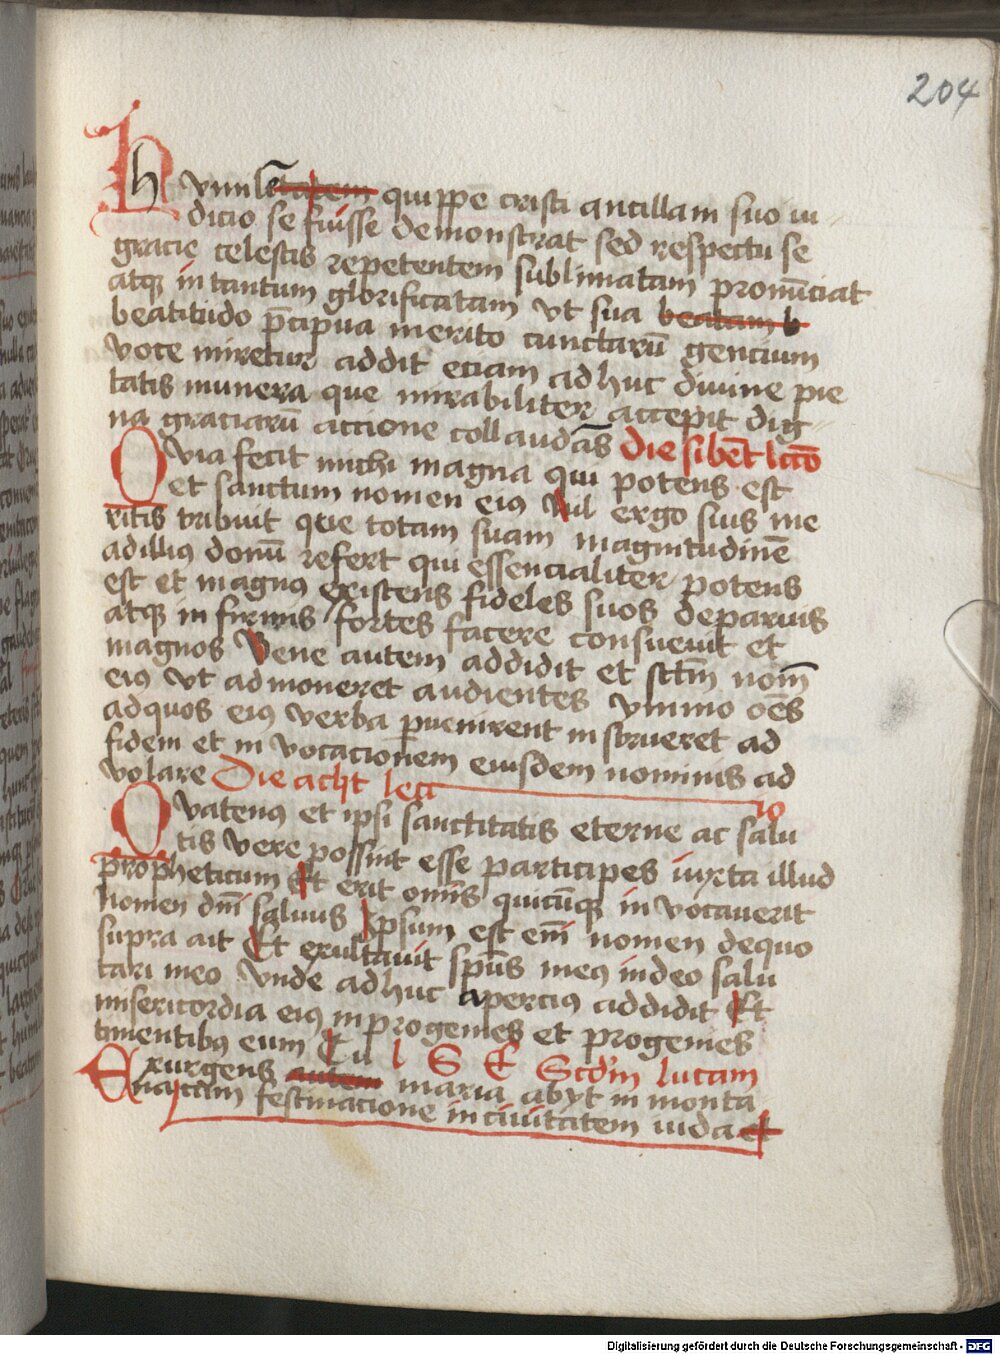 204
Humilẽ tatem quippe cristi ancillam suo iu
dicio se fuisse demonstrat sed respectu se
gracie celestis repetentem sublimatam pronũciat
atqȝ in tantum glorificatam vt sua beatam b
beatitudo p̃cipua merito cunctarũ gencium
voce miretur addit eciam ad huc diuine pie
tatis munera que mirabiliter accepit dig
na graciarũ accione collaudãs Die sibẽt lcc̃o
Quia fecit michi magna qui potens est
et sanctum nomen eius Nil ergo suis me
ritis tribuit que totam suam magnitudinẽ
ad illius donũ refert qui essencialiter potens
est et magnus existens fideles suos deparuis
atqȝ infirmis fortes facere consueuit et
magnos Bene autem addidit et sctm̃ nom̃
eius vt admoneret audientes ymmo oẽs
ad quos eius verba puenirent inscrueret ad
fidem et in vocacionem eiusdem nominis ad
volare Die acht lecc
io
Quatenus et ipsi sanctitatis eterne ac salu
tis vere possint esse participes iuxta illud
propheticum Et erit om̃is quicũqȝ in vocauerit
nomen dñi saluus Ipsum est em̃ nomen de quo
supra ait Et exultauit spũs meus in deo salu
tari meo vnde ad huc apercius addidit Et
misericordia eius in progenies et progenies
timentibus eum Tu l S E Scd̃m lucam
Exurgens autem maria abyt in monta
na cum festinacione in ciuitatem iuda et
Digitalisierung gefördert durch die Deutsche Forschungsgemeinschaft - DFG